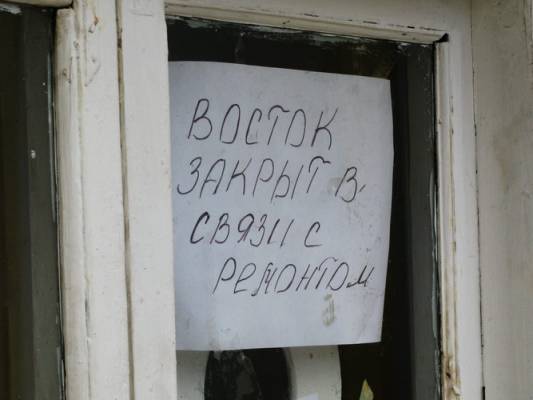 ВОСТОК
ЗАКРЫТ В
СВЯЗИ С
РЕМОНТОМ